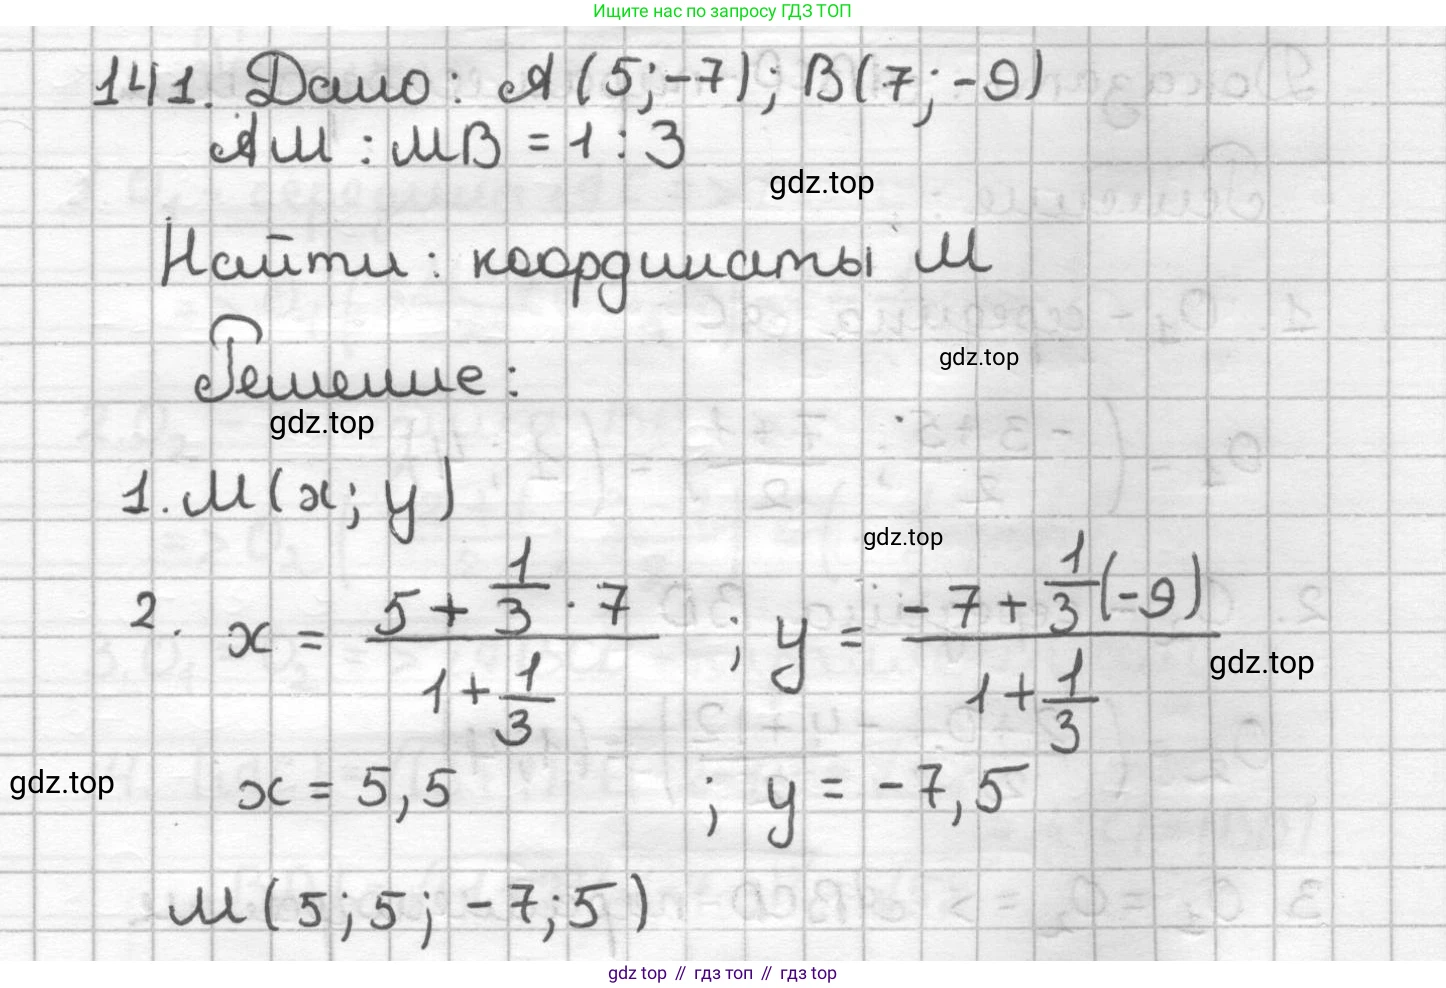 Ищите нас по запросу ГДЗ ТОП
141. Дано: A(5;-7); B(7;-9)
AM : MB = 1 : 3
gdz.top
Найти: координаты M
gdz.top
Решение:
gdz.top
1. M(x; y)
gdz.top
2. x = (5 + 1/3 · 7)/(1 + 1/3) ; y = (-7 + 1/3(-9))/(1 + 1/3)
gdz.top
gdz.top
x = 5,5 ; y = -7,5
M(5;5; -7;5)
gdz top // гдз топ // гдз top